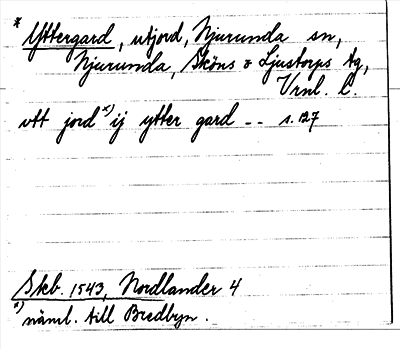 * Yttergard, utjord, Njurunda sn,
Njurunda, Sköns o Ljustorps tg,
Vrnl. l.
utt jord x) ij ytter gard -- s. 127
Skb. 1543, Nordlander 4
x) näml. till Bredbyn.